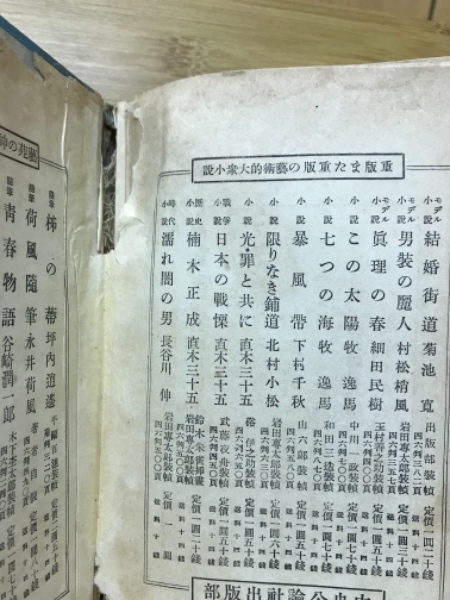 重版また重版の藝術的大衆小說
モデル小說 結婚街道 菊池寬 出版部裝幀 四六判三八二頁 定價一圓二十錢 送料十四錢
モデル小說 男裝の麗人 村松梢風 岩田專太郞裝幀 定價一圓三十錢 送料十四錢
モデル小說 眞理の春 細田民樹 玉村善之助裝幀 定價一圓五十錢 送料十四錢
小說 この太陽 牧逸馬 中川一政裝幀 定價一圓五十錢 送料十四錢
小說 七つの海 牧逸馬 和田三造裝幀 四六判八七〇頁 定價一圓七十錢 送料十四錢
小說 暴風帶 下村千秋 山六郞裝幀 四六判五八〇頁 定價一圓五十錢 送料十四錢
小說 限りなき鋪道 北村小松 岩田專太郞裝幀 四六判六三〇頁 定價一圓六十錢 送料十四錢
小說 光・罪と共に 直木三十五 定價一圓五十錢 送料十四錢
戰爭小說 日本の戰慄 直木三十五 定價一圓五十錢 送料十四錢
歷史小說 楠木正成 直木三十五 鈴木朱雀挿畫 岩田專太郞裝幀 定價一圓五十錢
時代小說 濡れ闇の男 長谷川伸 岩田專太郞裝幀 四六判五〇〇頁 定價一圓
中央公論社出版部
藝苑の
隨筆 柿の蔕 坪内逍遙
隨筆 荷風隨筆 永井荷風 著者自裝 四六判四九〇頁 定價一圓八十錢
隨筆 靑春物語 谷崎潤一郞 木下杢太郞裝幀 定價一圓七十